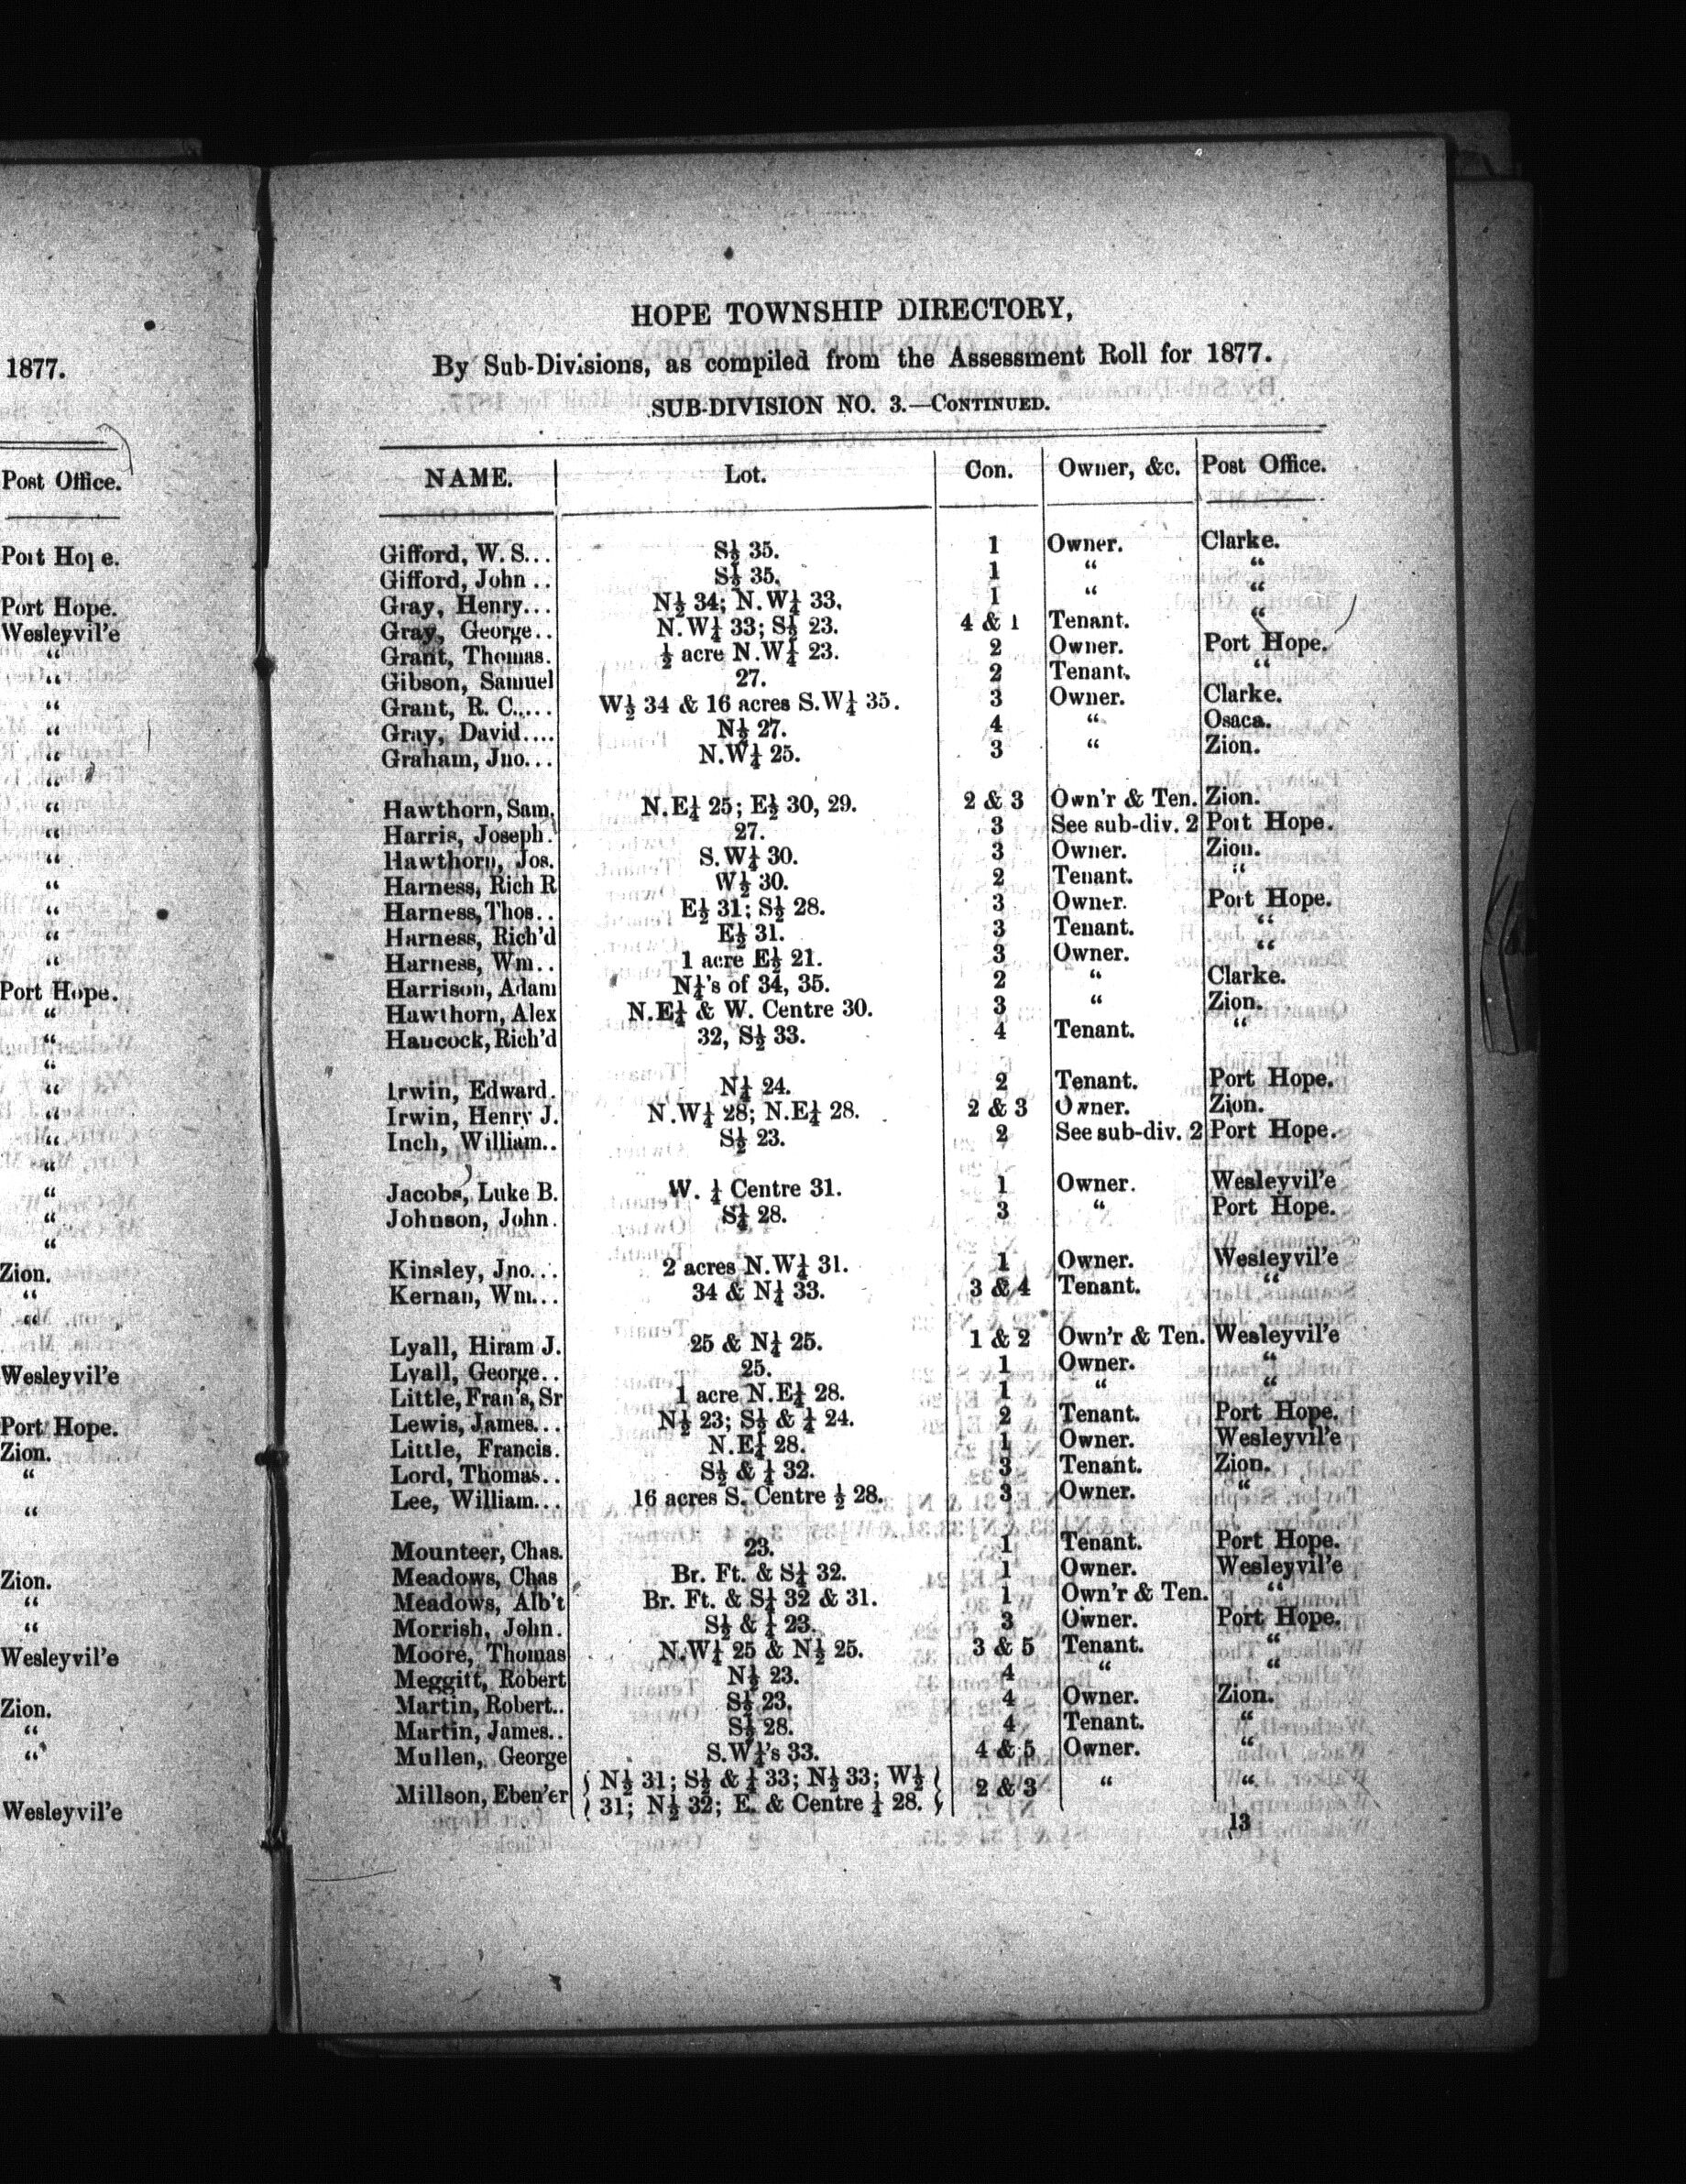 1877.
Post Office.
Port Hope.
Port Hope.
Wesleyvil'e
“
“
“
“
“
“
“
“
“
“
“
“
“
Port Hope.
“
“
“
“
“
“
“
“
“
“
Zion.
“
“
Wesleyvil'e
Port Hope.
Zion.
“
“
Zion.
“
“
Wesleyvil'e
Zion.
“
“
Wesleyvil'e
HOPE TOWNSHIP DIRECTORY,
By Sub-Divisions, as compiled from the Assessment Roll for 1877.
SUB-DIVISION NO. 3.—CONTINUED.
NAME. Lot. Con. Owner, &c. Post Office.
Gifford, W. S... S½ 35. 1 Owner. Clarke.
Gifford, John .. S½ 35. 1 “ “
Gray, Henry... N½ 34; N.W¼ 33. 1 “ “
Gray, George.. N.W¼ 33; S½ 23. 4 & 1 Tenant. “
Grant, Thomas. ½ acre N.W¼ 23. 2 Owner. Port Hope.
Gibson, Samuel 27. 2 Tenant. “
Grant, R. C..... W½ 34 & 16 acres S.W¼ 35. 3 Owner. Clarke.
Gray, David.... N½ 27. 4 “ Osaca.
Graham, Jno... N.W¼ 25. 3 “ Zion.
Hawthorn, Sam. N.E¼ 25; E½ 30, 29. 2 & 3 Own'r & Ten. Zion.
Harris, Joseph. 27. 3 See sub-div. 2 Port Hope.
Hawthorn, Jos. S.W¼ 30. 3 Owner. Zion.
Harness, Rich R W½ 30. 2 Tenant. “
Harness, Thos.. E½ 31; S½ 28. 3 Owner. Port Hope.
Harness, Rich'd E½ 31. 3 Tenant. “
Harness, Wm.. 1 acre E½ 21. 3 Owner. “
Harrison, Adam N¼'s of 34, 35. 2 “ Clarke.
Hawthorn, Alex N.E¼ & W. Centre 30. 3 “ Zion.
Hancock, Rich'd 32, S½ 33. 4 Tenant. “
Irwin, Edward. N¼ 24. 2 Tenant. Port Hope.
Irwin, Henry J. N.W¼ 28; N.E¼ 28. 2 & 3 Owner. Zion.
Inch, William.. S½ 23. 2 See sub-div. 2 Port Hope.
Jacobs, Luke B. W. ¼ Centre 31. 1 Owner. Wesleyvil'e
Johnson, John. S¼ 28. 3 “ Port Hope.
Kinsley, Jno... 2 acres N.W¼ 31. 1 Owner. Wesleyvil'e
Kernan, Wm... 34 & N¼ 33. 3 & 4 Tenant. “
Lyall, Hiram J. 25 & N¼ 25. 1 & 2 Own'r & Ten. Wesleyvil'e
Lyall, George.. 25. 1 Owner. “
Little, Fran's, Sr 1 acre N.E¼ 28. 1 “ “
Lewis, James... N½ 23; S½ & ¼ 24. 2 Tenant. Port Hope.
Little, Francis. N.E¼ 28. 1 Owner. Wesleyvil'e
Lord, Thomas.. S½ & ¼ 32. 3 Tenant. Zion.
Lee, William... 16 acres S. Centre ½ 28. 3 Owner. “
Mounteer, Chas. 23. 1 Tenant. Port Hope.
Meadows, Chas Br. Ft. & S¼ 32. 1 Owner. Wesleyvil'e
Meadows, Alb't Br. Ft. & S¼ 32 & 31. 1 Own'r & Ten. “
Morrish, John. S½ & ¼ 23. 3 Owner. Port Hope.
Moore, Thomas N.W¼ 25 & N½ 25. 3 & 5 Tenant. “
Meggitt, Robert N½ 23. 4 “ “
Martin, Robert.. S½ 23. 4 Owner. Zion.
Martin, James.. S½ 28. 4 Tenant. “
Mullen, George S.W¼'s 33. 4 & 5 Owner. “
Millson, Eben'er { N½ 31; S½ & ¼ 33; N½ 33; W½ } 2 & 3 “ “
{ 31; N½ 32; E. & Centre ¼ 28. }
13